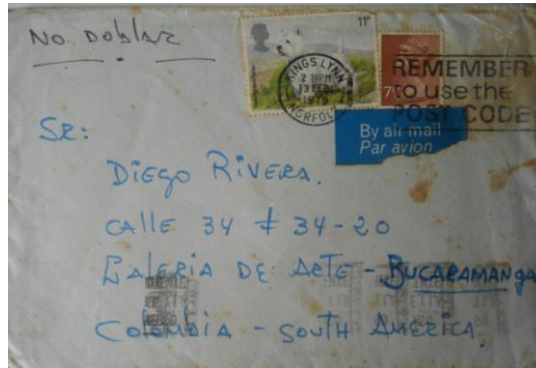 No Doblar
11P
KINGS LYNN
2 30PM
13 FEB
1979
NORFOLK
7
REMEMBER
to use the
POST CODE
By air mail
Par avion
Sr:
Diego Rivera.
Calle 34 # 34-20
Galeria de Arte - Bucaramanga
Colombia - South America